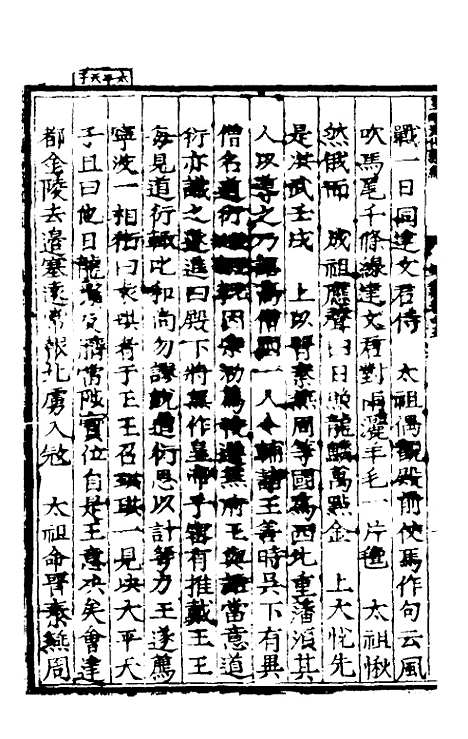 太平天子
戰一日同建文君侍　太祖偶觀殿前使馬作句云風
吹馬尾千條線建文君對雨灑羊毛一片氊　太祖愀
然俄而　成祖應聲曰日照龍鱗萬點金　上大悅先
是洪武壬戌　上以晉秦燕周等國為西北重藩須其
人以導之乃詔高僧四一人令輔諸王善時吳下有異
僧名道行因宗泐薦燕府王與語當意道
衍亦識之遂進曰殿下將無作皇帝乎審有推戴王王
每見道衍輒叱和尚勿謬說道衍思以計筭力王遂薦
寧波一相術曰袁珙者于王王召珙珙一見決太平天
子且曰他日龍髯及臍當陟寶位自是王意決矣會建
都金陵去邊塞遠常報北虜入寇　太祖命晉秦燕周